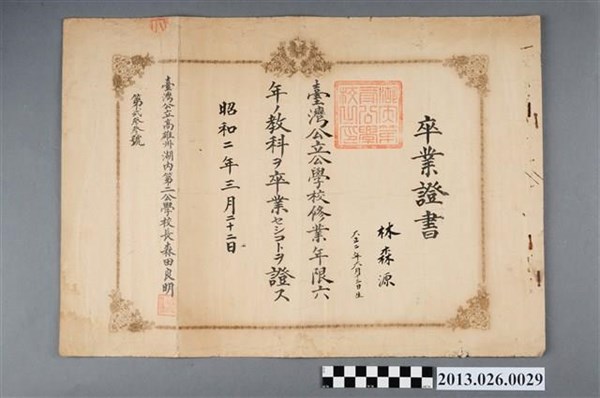 卒業證書
林森源
臺灣公立公學校修業年限六
年ノ教科ヲ卒業セシコトヲ證ス
昭和二年三月二十二日
臺灣公立高雄州湖内第二公學校長森田良明
第貳叁號
2013.026.0029